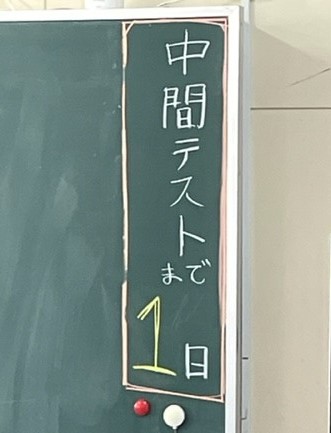 中間テストまで
1日